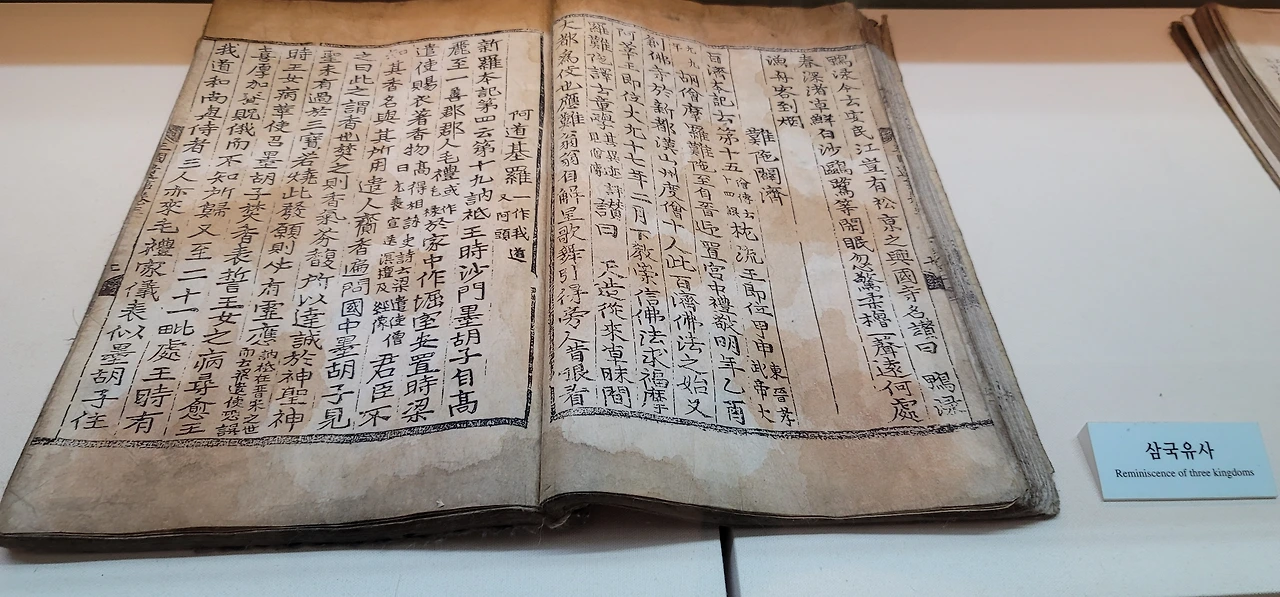 鴨淥今云安民江豈有松京之興國寺名讚曰 鴨淥
春深渚草鮮白沙鷗鷺等閑眠忽驚柔櫓一聲遠何處
漁舟客到烟
難陁闢濟
百濟本記云第十五僧傳云十四誤枕流王即位甲申東晉孝武帝大
元九年胡僧摩羅難陁至自晉迎置宮中禮敬明年乙酉
創佛寺於新都漢山州度僧十人此百濟佛法之始又
阿莘王即位大九十七年二月下教崇信佛法求福摩
羅難陁譯云童學其異迹詳見僧傳讚曰 天造從來草昧間
大都為伎也應難翁翁自解呈歌舞引得旁人借眼看
阿道基羅一作我道又阿頭
新羅本記第四云第十九訥祗王時沙門墨胡子自高
麗至一善郡郡人毛禮或作毛祿於家中作堀室安置時梁
遣使賜衣著香物高得相詠史詩云梁遣使僧曰元表宣送溟檀及經像君臣不
知其香名與其所用遣人齎香遍問國中墨胡子見
之曰此之謂香也焚之則香氣芬馥所以達誠於神聖神
聖未有過於三寶若燒此發願則必有靈應訥祗在晉宋之世而云梁遣使恐誤
時王女病革使召墨胡子焚香表誓王女之病尋愈王
喜厚加賚貺俄而不知所歸又至二十一毗處王時有
我道和尚與侍者三人亦來毛禮家儀表似墨胡子住
삼국유사
Reminiscence of three kingdoms